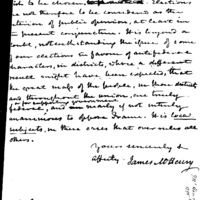 to be chosen, elections,
is not therefore to be considered as the
of public opinion, at least in
present conjuncture. It is beyond a
doubt, notwithstanding the issue of some
of our elections in favour of antifeds
characters, in districts, where a different
result might have been expected, that
the great mass of the people, in those districts
and throughout the union, are truly
or for supporting government
federal, and nearly if not intirely
unanimous to oppose France. It is local
subjects, in these cases that over rules all
others.
Yours sincerely &
affecty
James McHenry